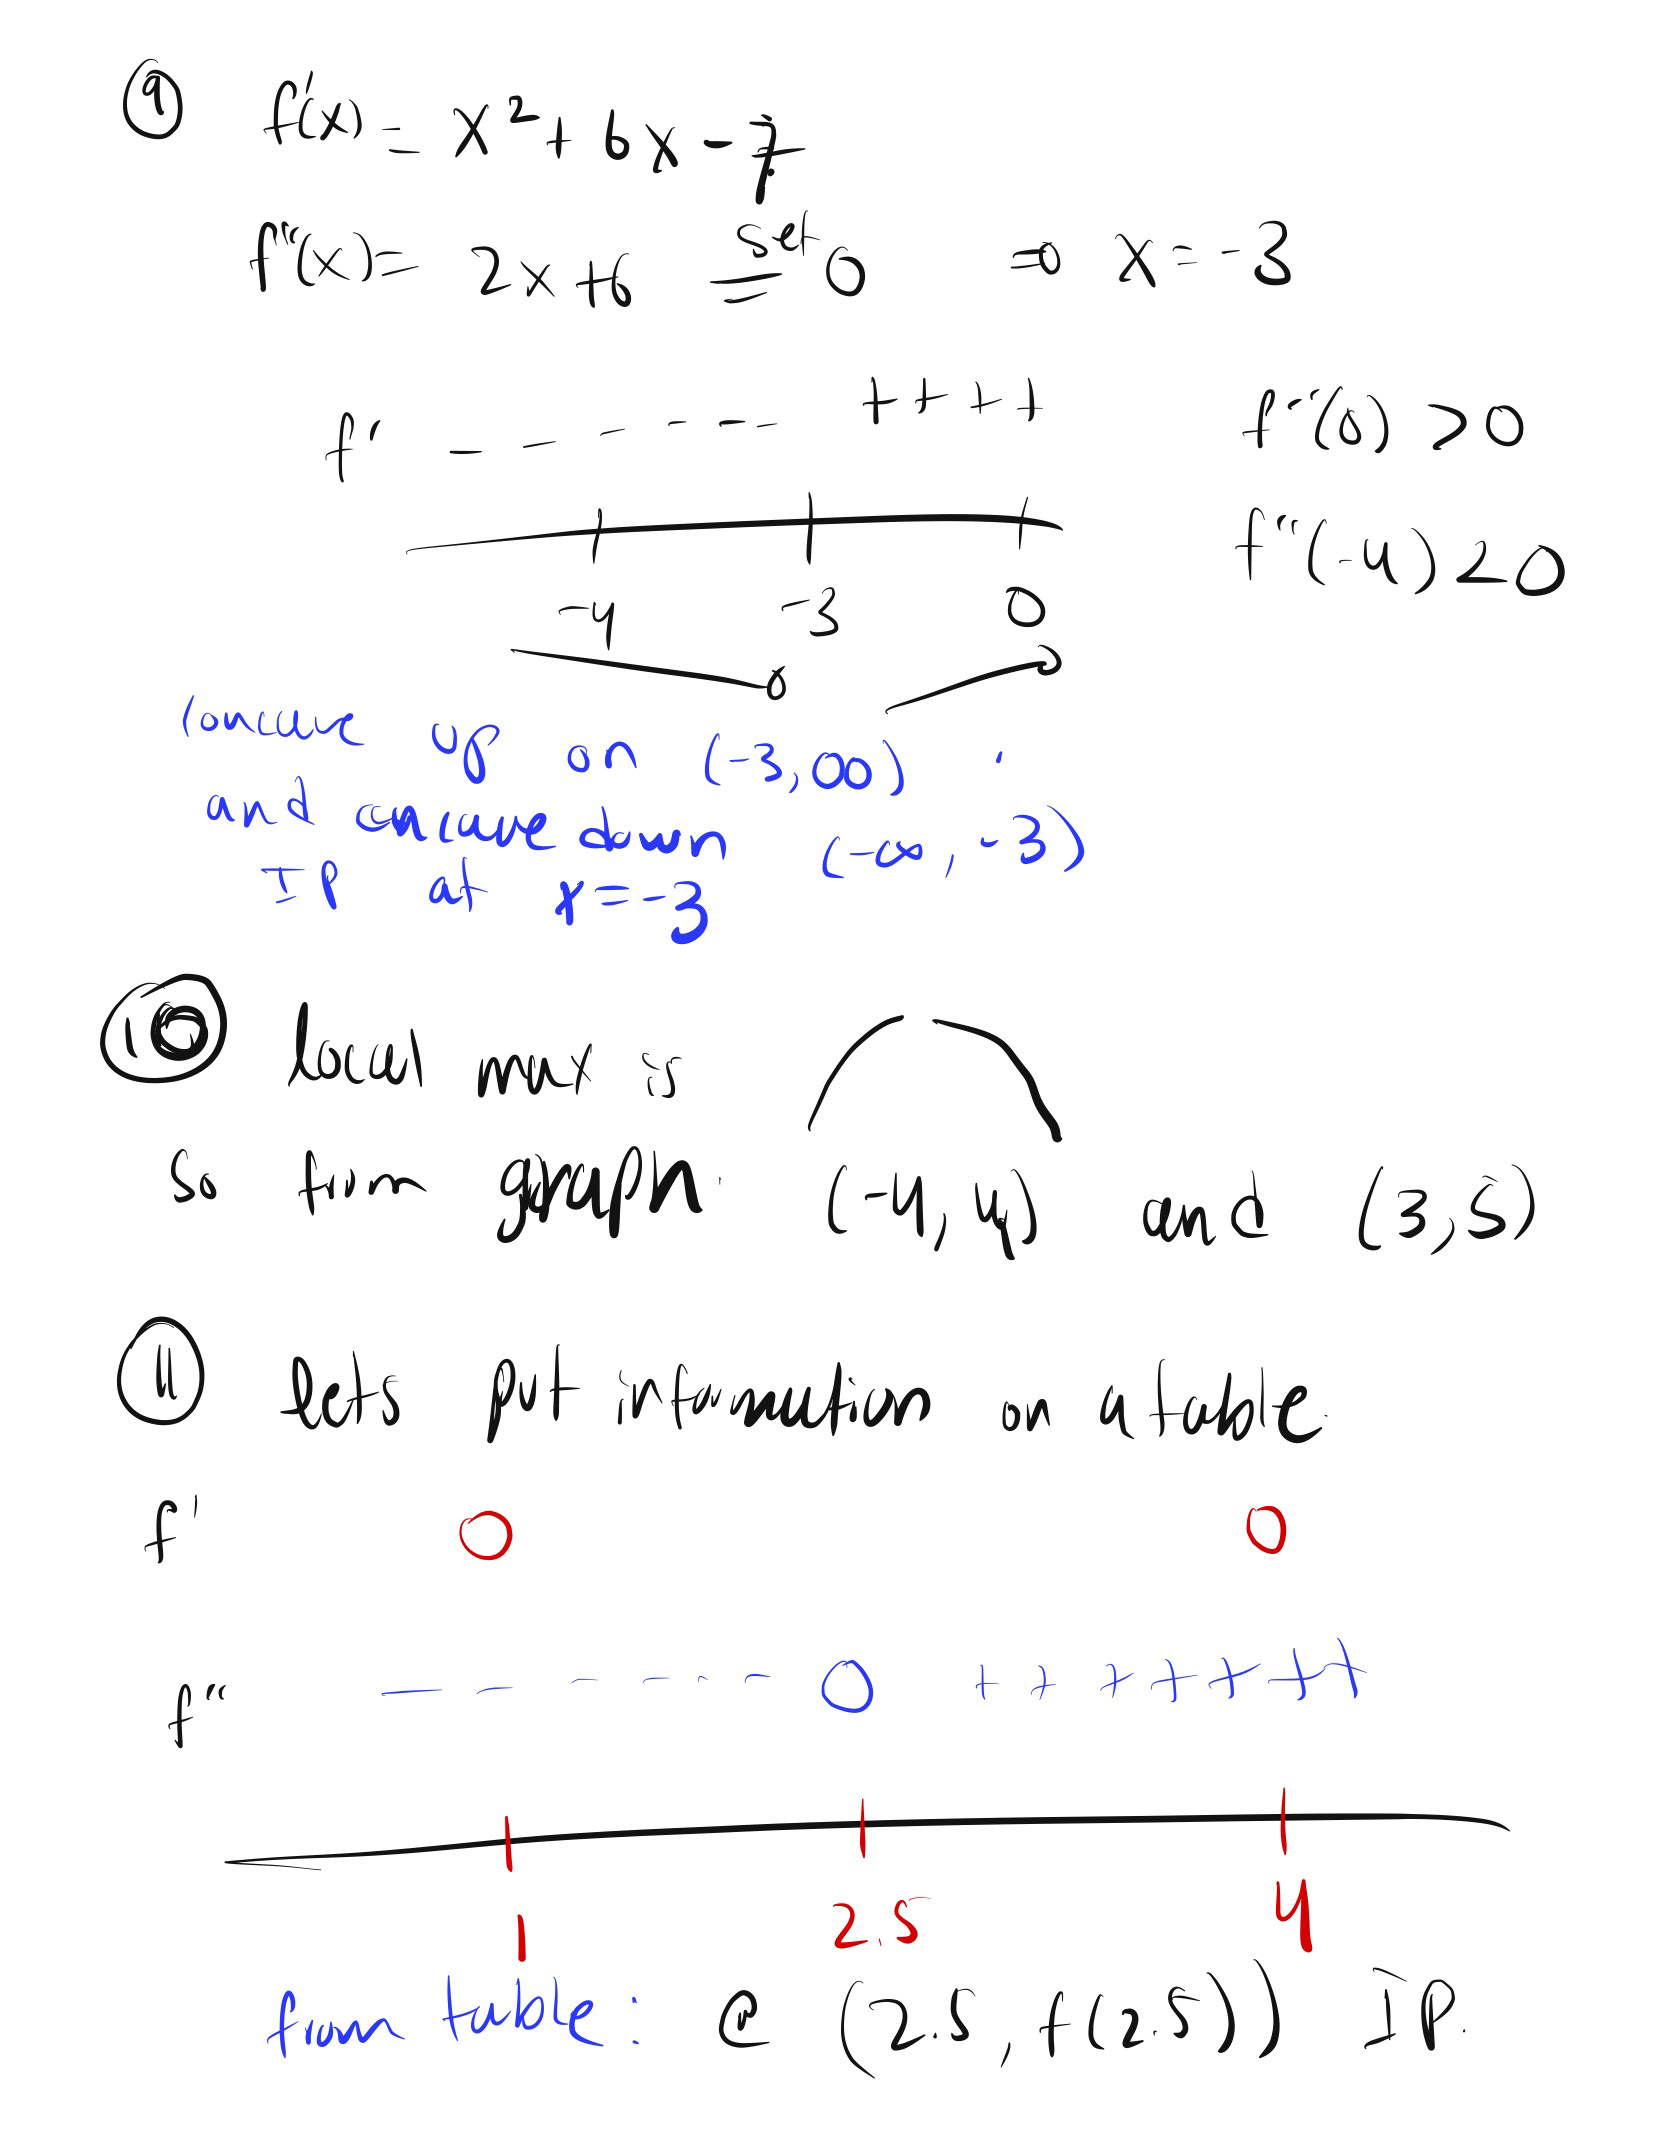 9 f'(x) = x² + 6x - 7
f''(x) = 2x + 6 set = 0 ⇒ x = -3
f' - - - - - - + + + +
f''(0) > 0
f''(-4) < 0
-4 -3 0
concave up on (-3, ∞)
and concave down (-∞, -3)
IP at x = -3
10 local max is
So from graph. (-4, 4) and (3, 5)
11 lets put information on a table.
f' 0 0
f'' - - - - - - 0 + + + + + + +
1 2.5 4
from table: @ (2.5, f(2.5)) IP.